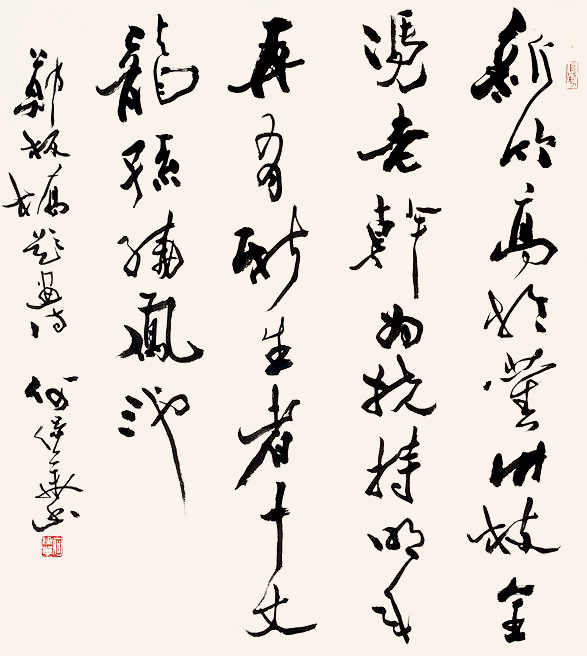 新竹高於舊竹枝全
憑老幹為扶持明年
再有新生者十丈
龍孫繞鳳池
鄭板橋題畫詩 何